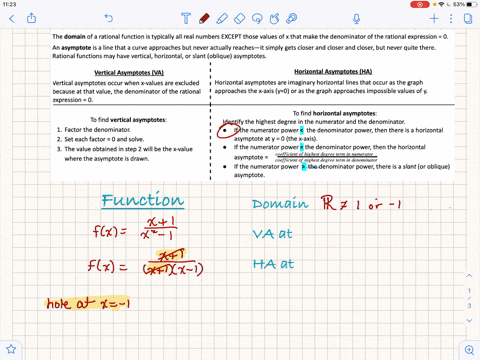 11:23
53%
The domain of a rational function is typically all real numbers EXCEPT those values of x that make the denominator of the rational expression = 0.
An asymptote is a line that a curve approaches but never actually reaches—it simply gets closer and closer and closer, but never quite there.
Rational functions may have vertical, horizontal, or slant (oblique) asymptotes.
Vertical Asymptotes (VA)
Vertical asymptotes occur when x-values are excluded
because at that value, the denominator of the rational
expression = 0.
Horizontal Asymptotes (HA)
Horizontal asymptotes are imaginary lines that occur as the graph
approaches the x-axis (y=0) or as the graph approaches impossible values of y.
To find vertical asymptotes:
1. Factor the denominator.
2. Set each factor = 0 and solve.
3. The value obtained in step 2 will be the x-value
where the asymptote is drawn.
To find horizontal asymptotes:
Identify the highest degree in the numerator and the denominator.
• If the numerator power < the denominator power, then there is a horizontal
asymptote at y = 0 (the x-axis).
• If the numerator power = the denominator power, then the horizontal
asymptote = coefficient of highest degree term in numerator / coefficient of highest degree term in denominator
• If the numerator power > the denominator power, there is a slant (or oblique)
asymptote.
Function
Domain ℝ ≠ 1 or -1
f(x) = x+1 / x²-1
VA at
f(x) = x+1 / (x+1)(x-1)
HA at
hole at x=-1
1
3